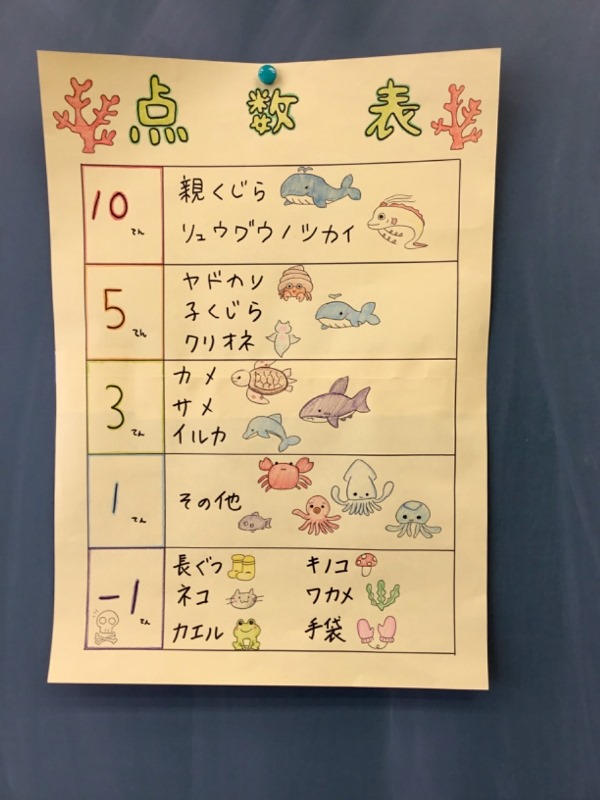 点数表
10てん
親くじら
リュウグウノツカイ
5てん
ヤドカリ
子くじら
クリオネ
3てん
カメ
サメ
イルカ
1てん
その他
-1てん
長ぐつ キノコ
ネコ ワカメ
カエル 手袋